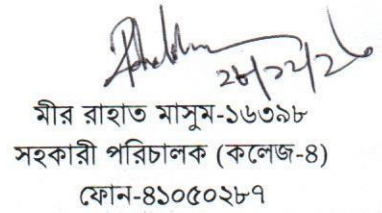 ২৮/১২/২৬
মীর রাহাত মাসুম-১৬৩৯৮
সহকারী পরিচালক (কলেজ-৪)
ফোন-৪১০৫০২৮৭